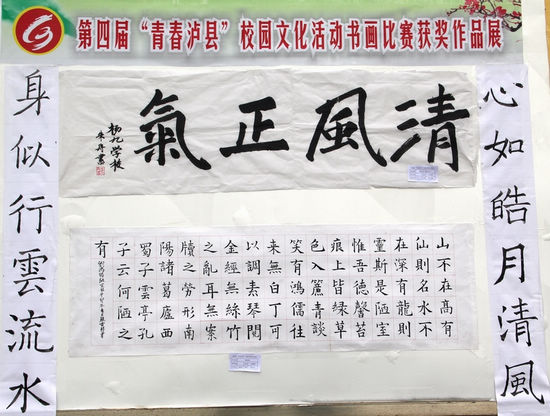 第四届“青春泸县”校园文化活动书画比赛获奖作品展
心如皓月清風
身似行雲流水
清風正氣
杨九学校
山不在高有
仙則名水不
在深有龍則
靈斯是陋室
惟吾德馨苔
痕上皆緑草
色入簾青談
笑有鴻儒往
來無白丁可
以調素琴閱
金經無絲竹
之亂耳無案
牘之勞形南
陽諸葛廬西
蜀子雲亭孔
子云何陋之
有